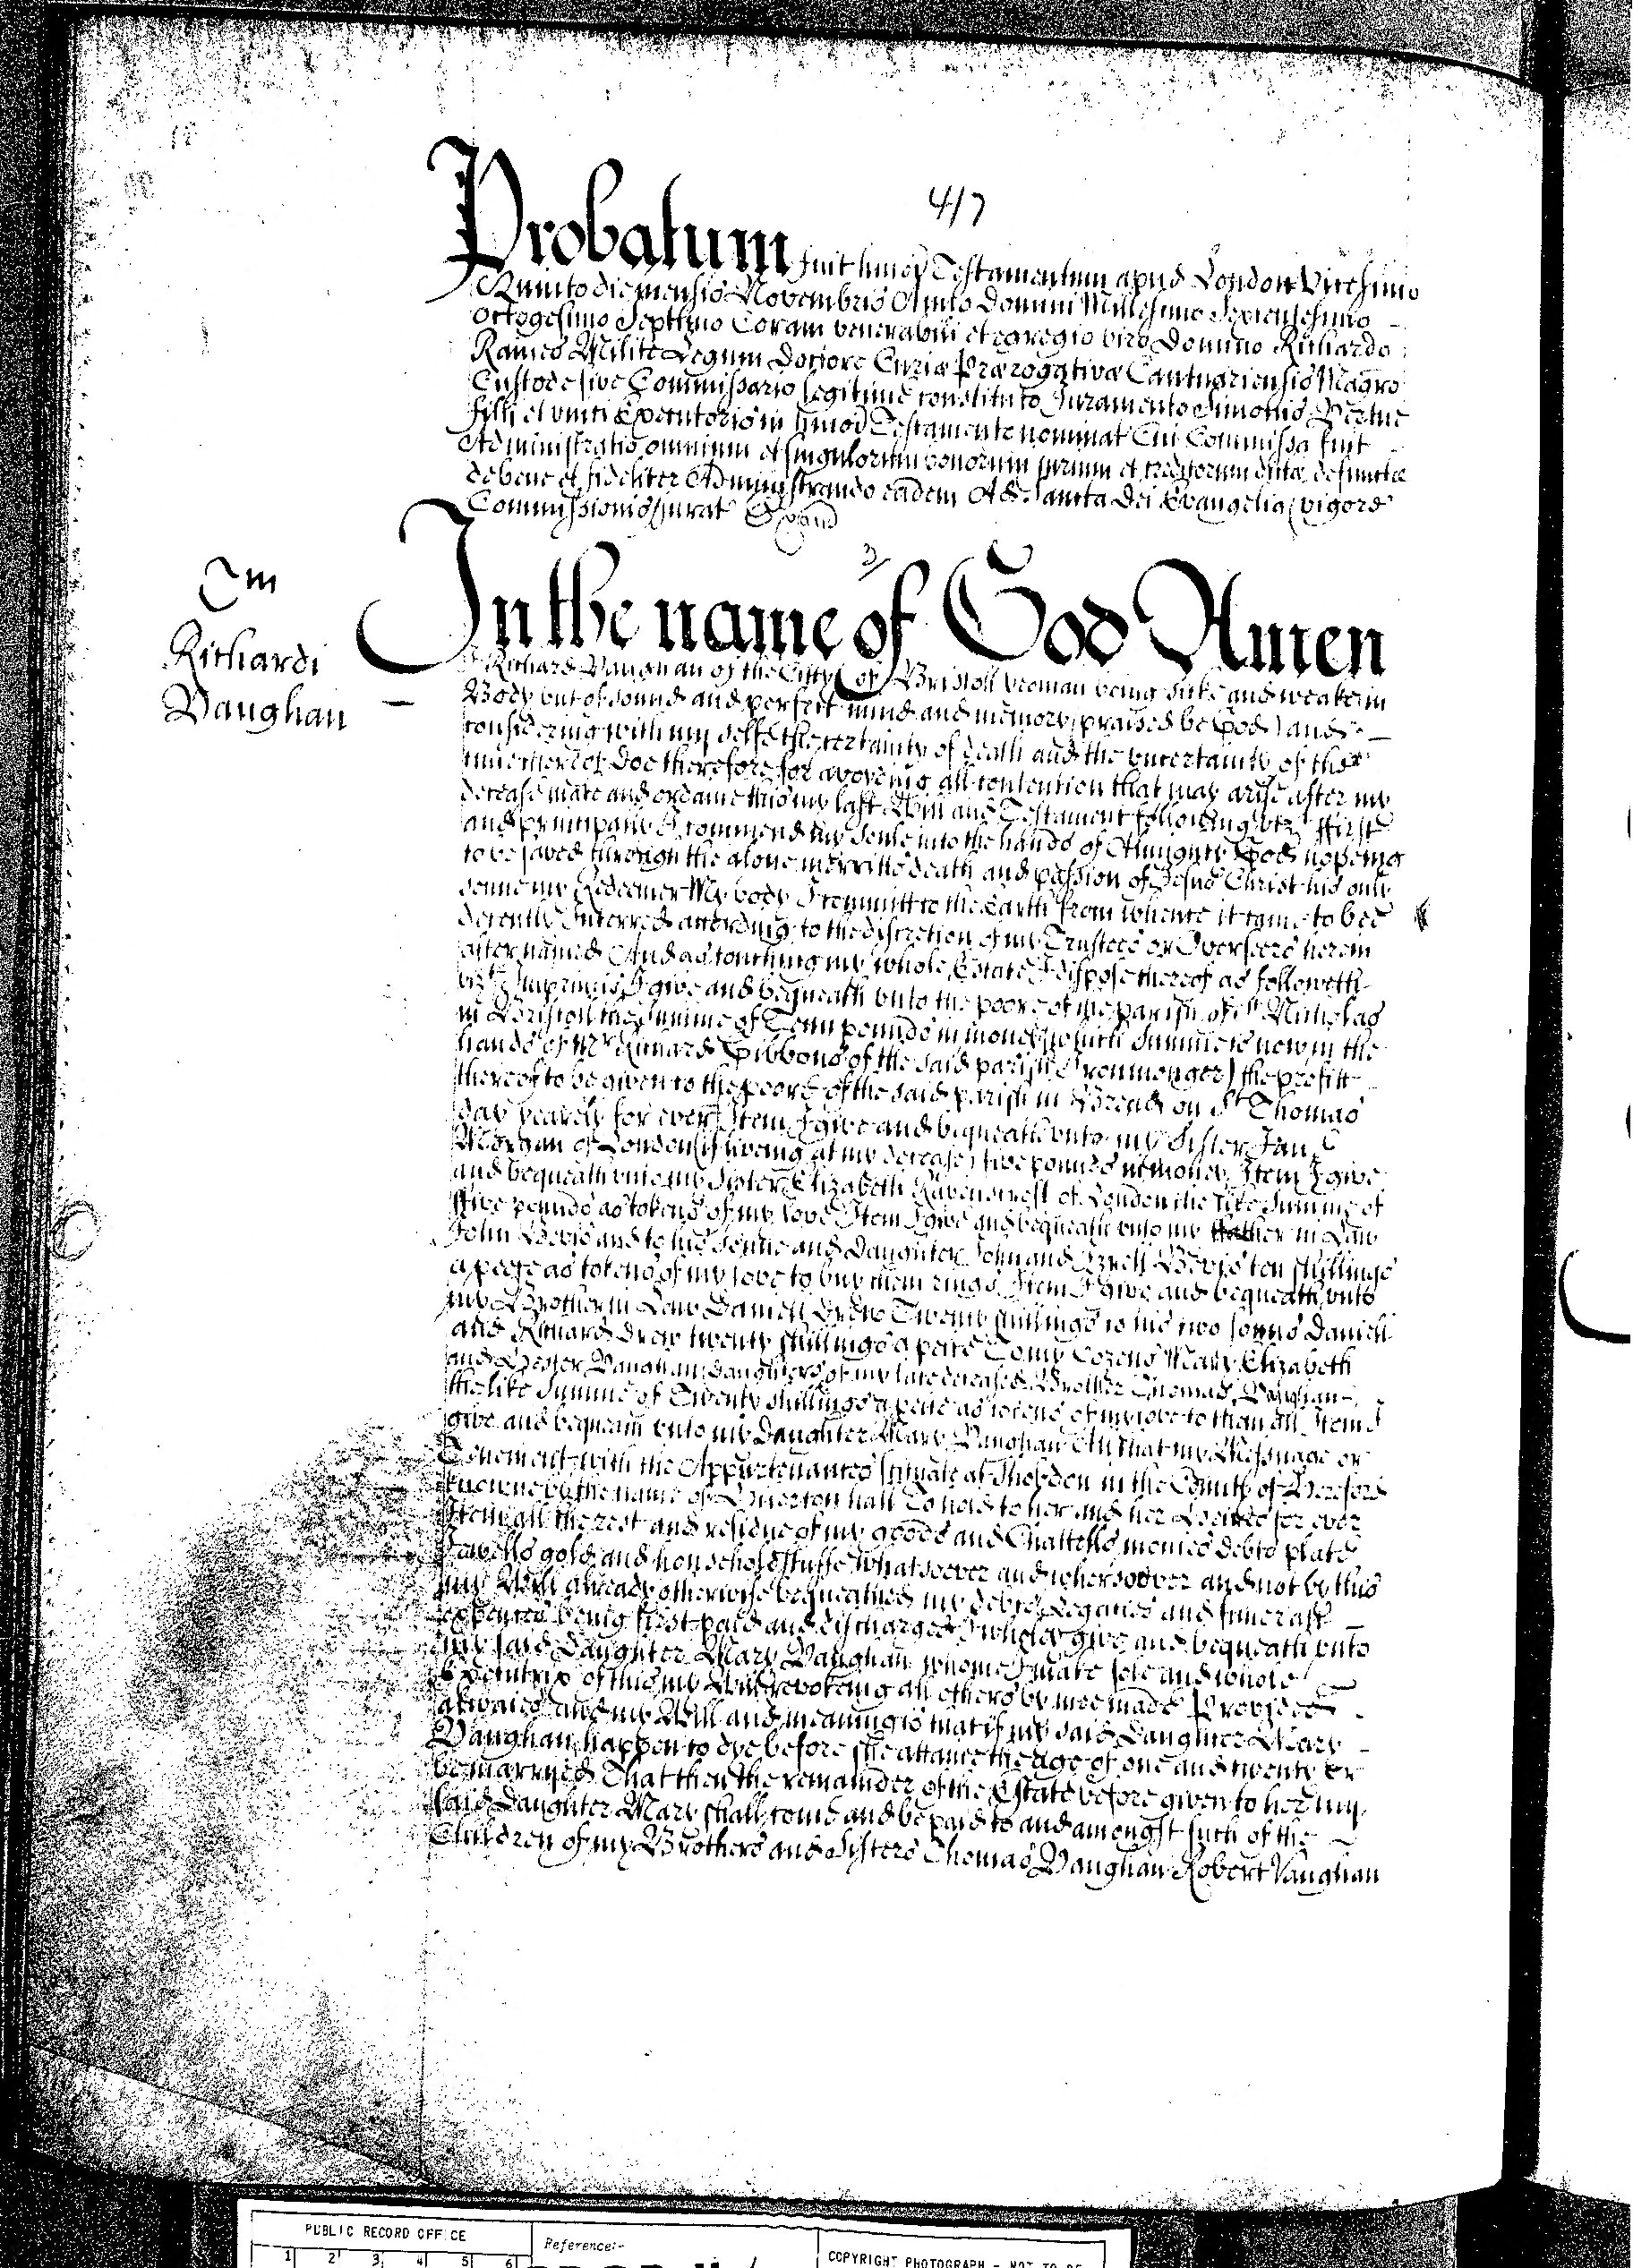 417
Probatum fuit hmoi Testamentum apud London Vicesimo
Quinto die mensis Novembris Anno Domini Millesimo Sexcentesimo
octogesimo Septimo Coram venerabili et egregio viro Domino Richardo
Raines Milite Legum Doctore Curiæ Prærogativæ Cantuariensis Magro
Custode sive Commissario legitime constituto Juramento Simonis Vertue
filii et unici Executoris in hmoi Testamento nominat Cui Commissa fuit
Administratio omnium et singulorum bonorum jurium et creditorum dictæ defunctæ
de bene et fideliter Administrando eadem Ad Sancta Dei Evangelia vigore
Commissionis jurat
Tm
Richardi
Vaughan
In the name of God Amen
I Richard Vaughan of the Citty of Bristoll yeoman being sicke and weake in
Body but of sound and perfect mind and memory (praised be God) and
considering with my selfe the certainty of death and the uncertainty of the
time thereof doe therefore for avoyding all contention that may arise after my
decease make and ordaine this my last Will and Testament following vizt ffirst
and principally I commend my soule into the hands of Almighty God hopeing
to be saved through the alone merritts death and passion of Jesus Christ his only
sonne my Redeemer My body I committ to the Earth from whence it came to bee
decently Interred according to the discretion of my Trustees or Overseers herein
after named And as touching my whole Estate I dispose thereof as followeth
vizt Imprimis I give and bequeath unto the poore of the parish of St Nicholas
in Bristoll the Summe of Tenn pounds in money (which Summe is now in the
hands of Mr Richard Gibbons of the said parish Ironmonger) the profitt
thereof to be given to the poore of the said parish in Bread on St Thomas
day yearely for ever Item I give and bequeath unto my Sister Jane
Morgan of London (if liveing at my decease) five pounds in money Item I give
and bequeath unto my Sister Elizabeth Ravenscroft of London the like Summe of
ffive pounds as tokens of my love Item I give and bequeath unto my ffather in Law
John Bevis and to his Sonne and Daughter John and Bevis ten shillings
a peece as tokens of my love to buy them rings Item I give and bequeath unto
my Brother in Law Daniell Drew Twenty shillings to his two sonns Daniell
and Richard Drew twenty shillings a peece To my Cozens Mary Elizabeth
and Hester Vaughan daughters of my late deceased Brother Thomas Vaughan
the like Summe of Twenty shillings a peece as tokens of my love to them all Item I
give and bequeath unto my daughter Mary Vaughan All that my Messuage or
Tenement with the Appurtenances scituate at Shobdon in the County of Hereford
knowne by the name of hall To hold to her and her Heires for ever
Item all the rest and residue of my goods and Chattells monies debts plate
Jewells gold and houshold stuffe whatsoever and wheresoever and not by this
my Will already otherwise bequeathed my debts Legacies and funerall
expences being first paid and discharged I wholly give and bequeath unto
my said Daughter Mary Vaughan whome I make sole and whole
Executrix of this my Will revokeing all others by mee made Provided
alwaies and my Will and meaning is that if my said Daughter Mary
Vaughan happen to dye before she attaine the age of one and twenty or
be marryed That then the remainder of the Estate before given to her my
said Daughter Mary shall come and be paid to and amongst such of the
Children of my Brothers and Sisters Thomas Vaughan Robert Vaughan
PUBLIC RECORD OFFICE
Reference:-
1 2 3 4 5 6
COPYRIGHT PHOTOGRAPH - NOT TO BE